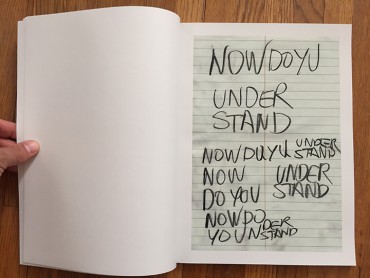 NOW DO YU
UNDER
STAND
NOW DUYU UNDER
STAND
NOW UNDER
DO YOU STAND
NOW DO DER
YOUN STAND